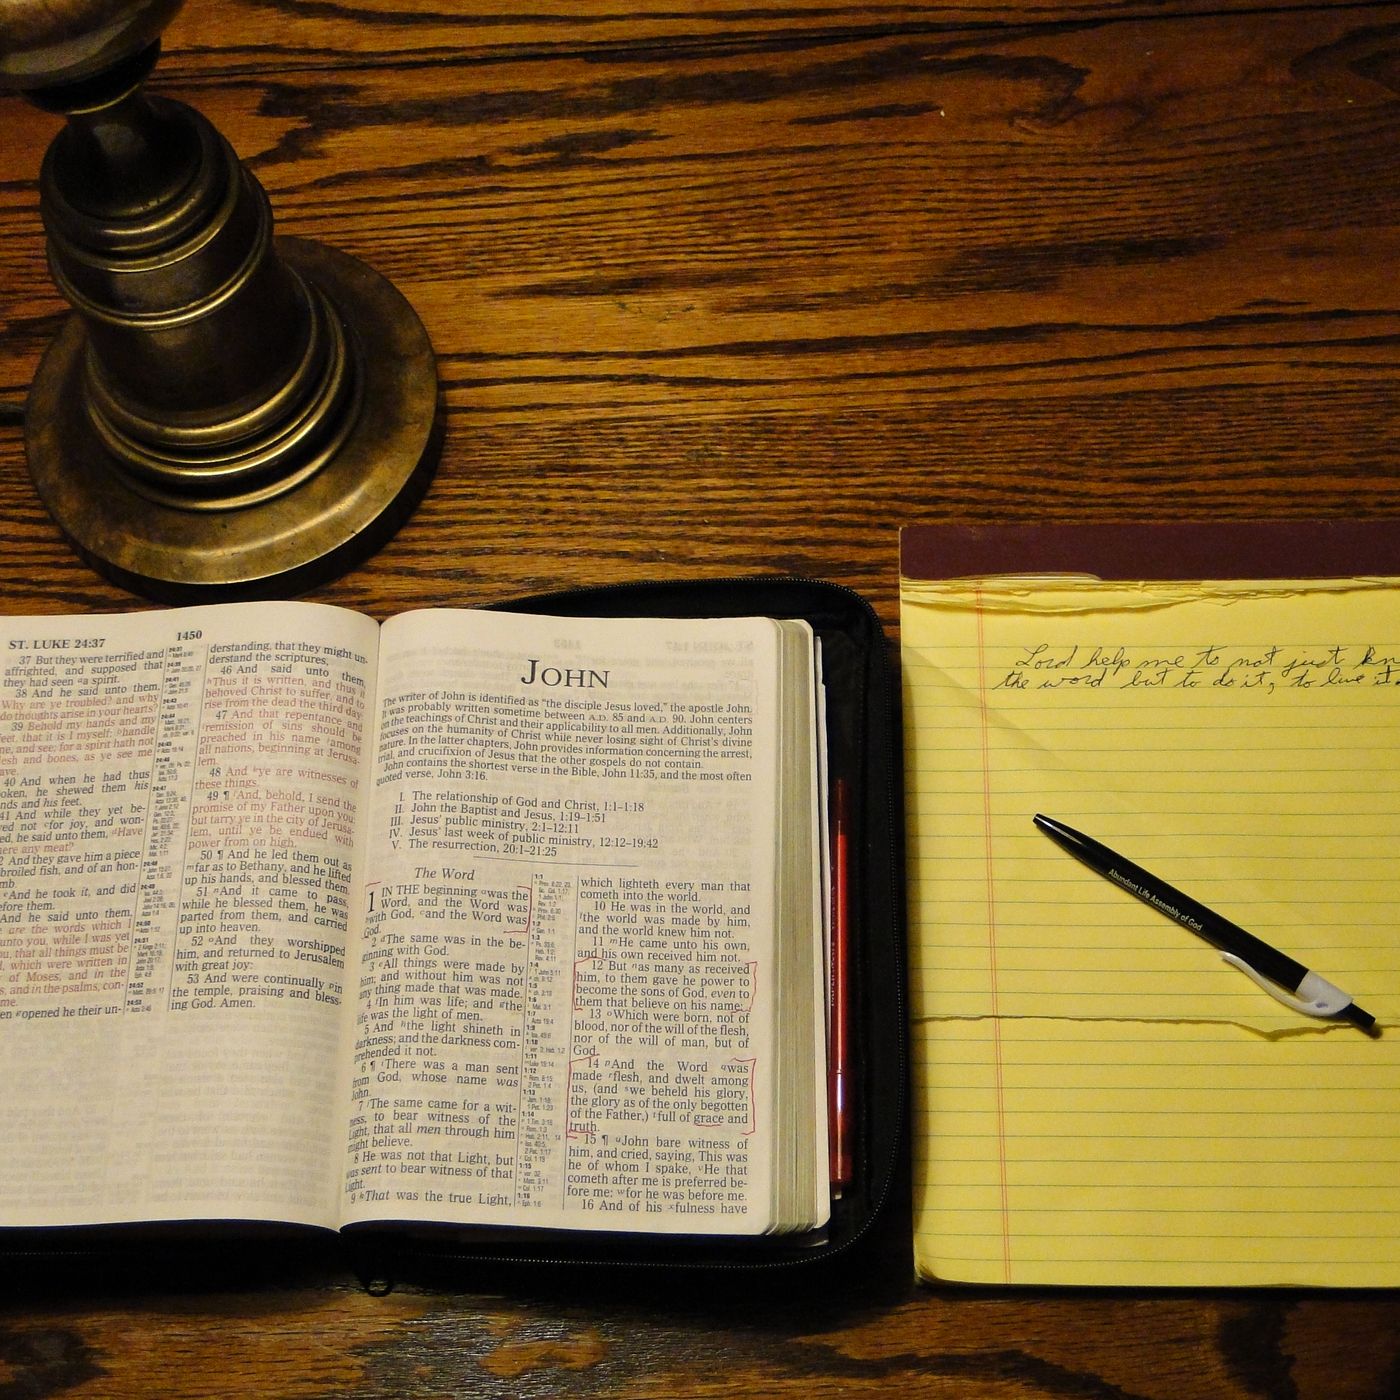 ST. LUKE 24:37
1450
37 But they were terrified and
affrighted, and supposed that
they had seen a spirit.
38 And he said unto them,
Why are ye troubled? and why
do thoughts arise in your hearts?
39 Behold my hands and my
feet, that it is I myself: handle
me, and see; for a spirit hath not
flesh and bones, as ye see me
have.
40 And when he had thus
spoken, he shewed them his
hands and his feet.
41 And while they yet be-
ved not for joy, and won-
ed, he said unto them, Have
here any meat?
2 And they gave him a piece
broiled fish, and of an hon-
mb.
And he took it, and did
efore them.
And he said unto them,
e are the words which I
unto you, while I was yet
ou, that all things must be
d, which were written in
of Moses, and in the
s, and in the psalms, con-
me.
en opened he their un-
derstanding, that they might un-
derstand the scriptures,
46 And said unto them,
Thus it is written, and thus it
behoved Christ to suffer, and to
rise from the dead the third day:
47 And that repentance and
remission of sins should be
preached in his name among
all nations, beginning at Jerusa-
lem.
48 And ye are witnesses of
these things.
49 ¶ And, behold, I send the
promise of my Father upon you:
but tarry ye in the city of Jerusa-
lem, until ye be endued with
power from on high.
50 ¶ And he led them out as
far as to Bethany, and he lifted
up his hands, and blessed them.
51 And it came to pass,
while he blessed them, he was
parted from them, and carried
up into heaven.
52 And they worshipped
him, and returned to Jerusalem
with great joy:
53 And were continually in
the temple, praising and bless-
ing God. Amen.
JOHN
The writer of John is identified as "the disciple Jesus loved," the apostle John.
It was probably written sometime between A.D. 85 and A.D. 90. John centers
on the teachings of Christ and their applicability to all men. Additionally, John
focuses on the humanity of Christ while never losing sight of Christ's divine
nature. In the latter chapters, John provides information concerning the arrest,
trial, and crucifixion of Jesus that the other gospels do not contain.
John contains the shortest verse in the Bible, John 11:35, and the most often
quoted verse, John 3:16.
I. The relationship of God and Christ, 1:1–1:18
II. John the Baptist and Jesus, 1:19–1:51
III. Jesus' public ministry, 2:1–12:11
IV. Jesus' last week of public ministry, 12:12–19:42
V. The resurrection, 20:1–21:25
The Word
1 IN THE beginning was the
Word, and the Word was
with God, and the Word was
God.
2 The same was in the be-
ginning with God.
3 All things were made by
him; and without him was not
any thing made that was made.
4 In him was life; and the
life was the light of men.
5 And the light shineth in
darkness; and the darkness com-
prehended it not.
6 ¶ There was a man sent
from God, whose name was
John.
7 The same came for a wit-
ness, to bear witness of the
Light, that all men through him
might believe.
8 He was not that Light, but
was sent to bear witness of that
Light.
9 That was the true Light,
which lighteth every man that
cometh into the world.
10 He was in the world, and
the world was made by him,
and the world knew him not.
11 He came unto his own,
and his own received him not.
12 But as many as received
him, to them gave he power to
become the sons of God, even to
them that believe on his name:
13 Which were born, not of
blood, nor of the will of the flesh,
nor of the will of man, but of
God.
14 And the Word was
made flesh, and dwelt among
us, (and we beheld his glory,
the glory as of the only begotten
of the Father,) full of grace and
truth.
15 ¶ John bare witness of
him, and cried, saying, This was
he of whom I spake, He that
cometh after me is preferred be-
fore me: for he was before me.
16 And of his fulness have
Lord help me to not just kn
the word but to do it, to live it.
Abundant Life Assembly of God